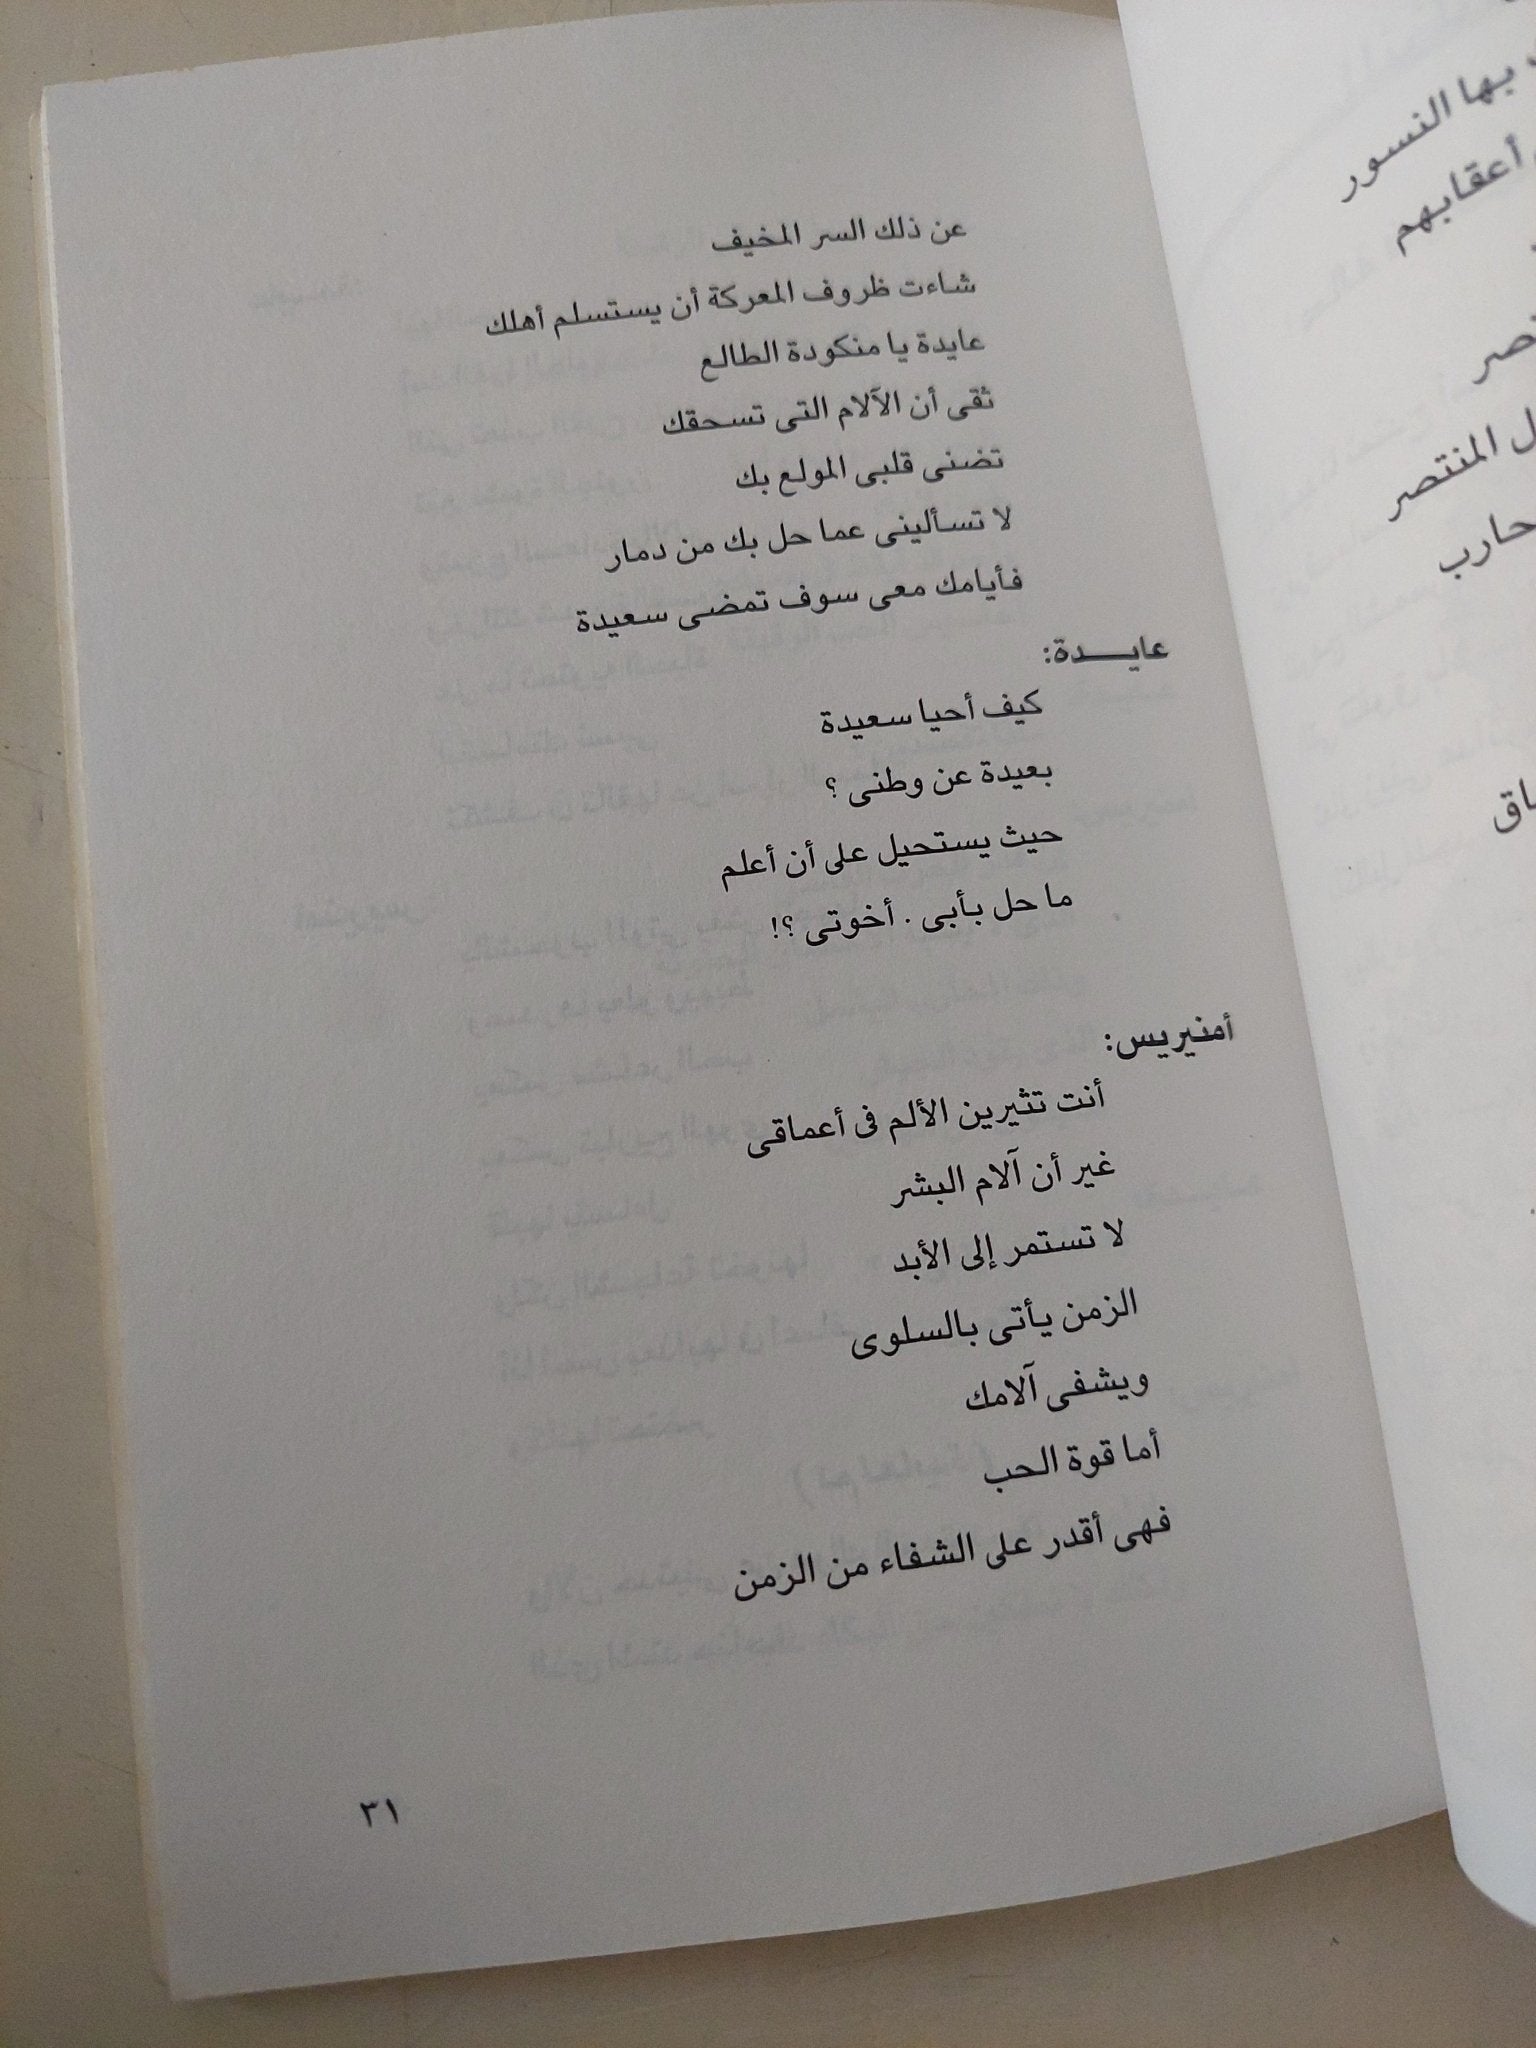 عن ذلك السر المخيف
شاءت ظروف المعركة أن يستسلم أهلك
عايدة يا منكودة الطالع
ثقى أن الآلام التى تسحقك
تضنى قلبى المولع بك
لا تسألينى عما حل بك من دمار
فأيامك معى سوف تمضى سعيدة
عايـــدة:
كيف أحيا سعيدة
بعيدة عن وطنى ؟
حيث يستحيل على أن أعلم
ما حل بأبى . أخوتى ؟!
أمنيريس:
أنت تثيرين الألم فى أعماقى
غير أن آلام البشر
لا تستمر إلى الأبد
الزمن يأتى بالسلوى
ويشفى آلامك
أما قوة الحب
فهى أقدر على الشفاء من الزمن
٣١
بها النسور
أعقابهم
المنتصر